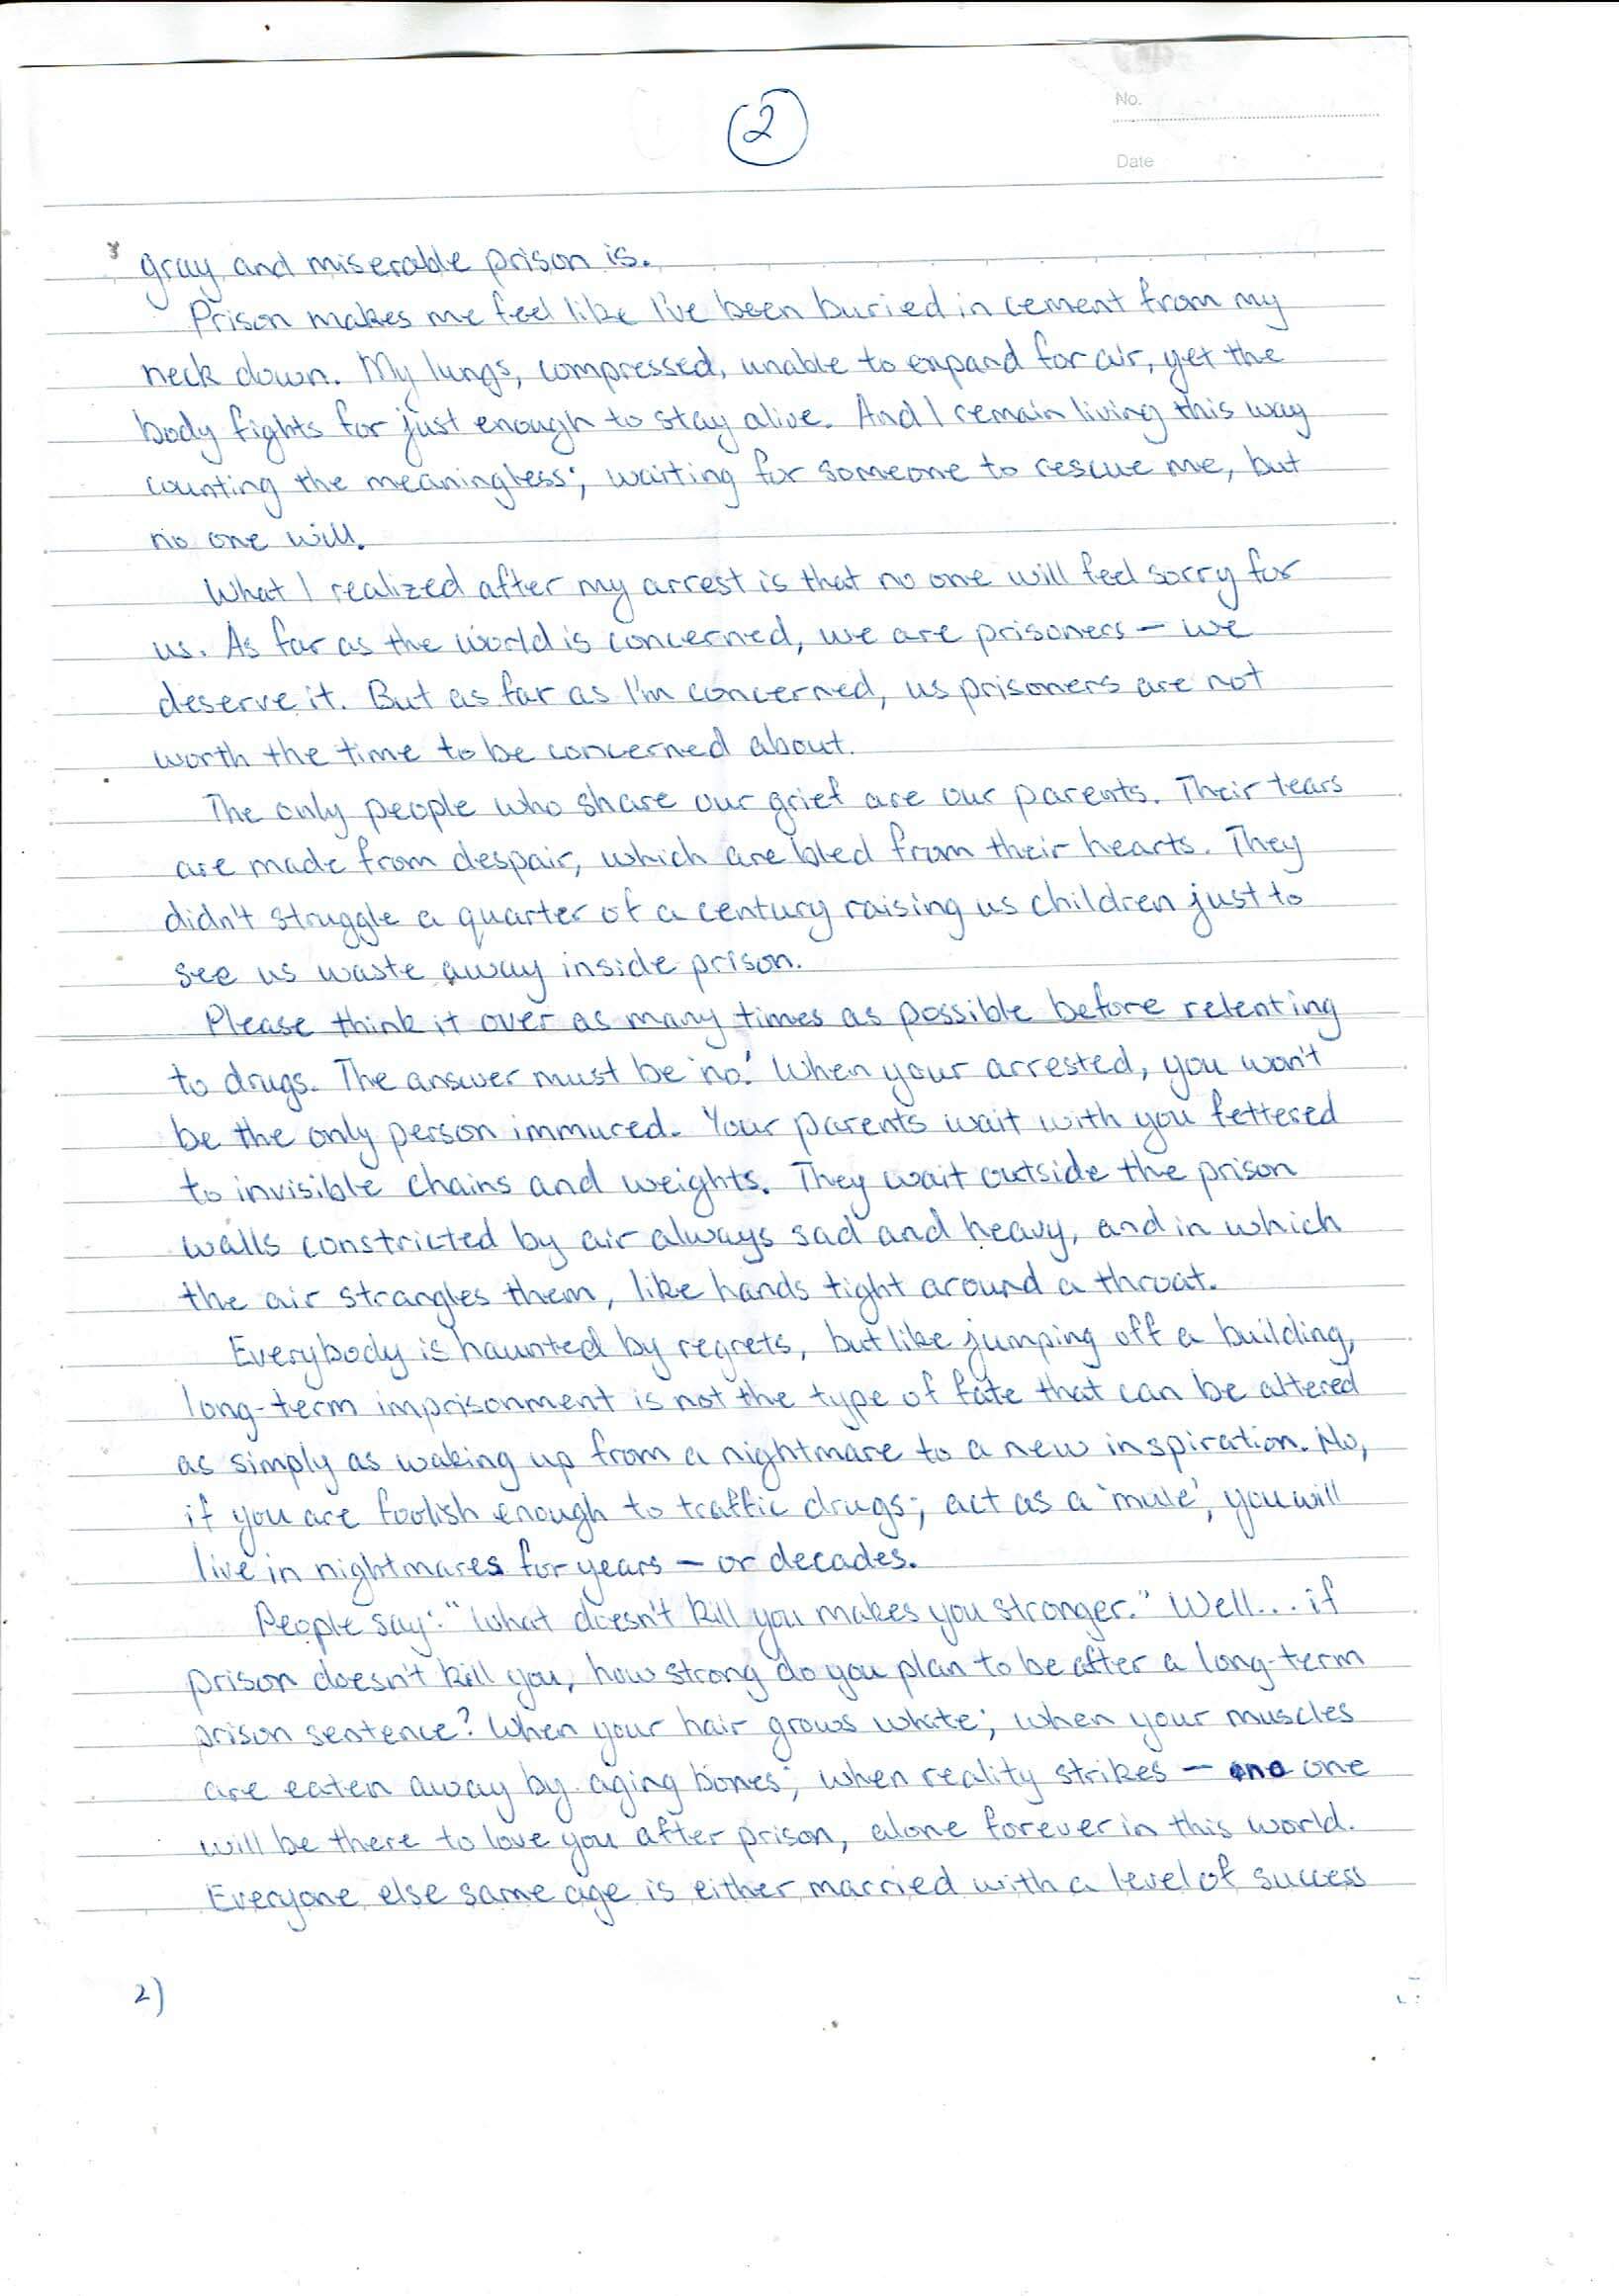 2
No.
Date
gray and miserable prison is.
Prison makes me feel like I've been buried in cement from my
neck down. My lungs, compressed, unable to expand for air, yet the
body fights for just enough to stay alive. And I remain living this way
counting the meaningless; waiting for someone to rescue me, but
no one will.
What I realized after my arrest is that no one will feel sorry for
us. As far as the world is concerned, we are prisoners – we
deserve it. But as far as I'm concerned, us prisoners are not
worth the time to be concerned about.
The only people who share our grief are our parents. Their tears
are made from despair, which are bled from their hearts. They
didn't struggle a quarter of a century raising us children just to
see us waste away inside prison.
Please think it over as many times as possible before relenting
to drugs. The answer must be 'no.' When your arrested, you won't
be the only person immured. Your parents wait with you fettered
to invisible chains and weights. They wait outside the prison
walls constricted by air always sad and heavy, and in which
the air strangles them, like hands tight around a throat.
Everybody is haunted by regrets, but like jumping off a building,
long-term imprisonment is not the type of fate that can be altered
as simply as waking up from a nightmare to a new inspiration. No,
if you are foolish enough to traffic drugs; act as a 'mule', you will
live in nightmares for years – or decades.
People say: "What doesn't kill you makes you stronger." Well... if
prison doesn't kill you, how strong do you plan to be after a long-term
prison sentence? When your hair grows white; when your muscles
are eaten away by aging bones; when reality strikes – no one
will be there to love you after prison, alone forever in this world.
Everyone else same age is either married with a level of success
2)